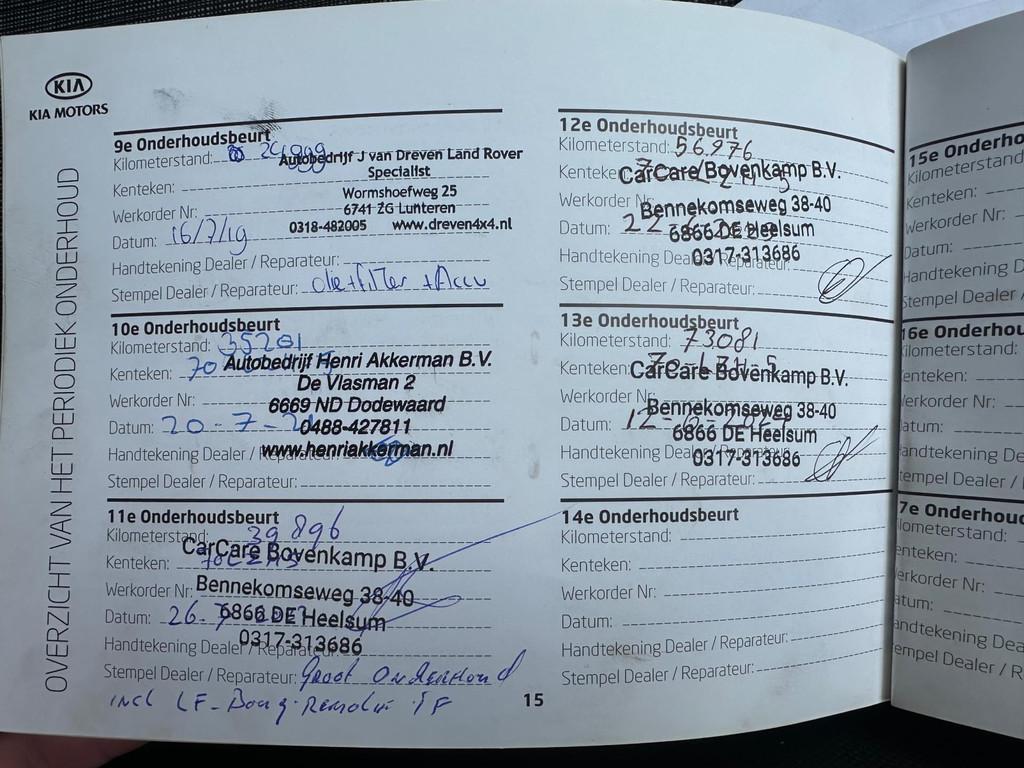 KIA
KIA MOTORS
OVERZICHT VAN HET PERIODIEK ONDERHOUD
9e Onderhoudsbeurt
Kilometerstand:
Autobedrijf J van Dreven Land Rover
Specialist
Kenteken:
Wormshoefweg 25
Werkorder Nr:
6741 ZG Lunteren
Datum: 16/7/19
0318-482005 www.dreven4x4.nl
Handtekening Dealer / Reparateur:
Stempel Dealer / Reparateur: olie+filter +Accu
10e Onderhoudsbeurt
Kilometerstand: 35201
Autobedrijf Henri Akkerman B.V.
Kenteken: 70
De Vlasman 2
Werkorder Nr:
6669 ND Dodewaard
Datum: 20-7-
0488-427811
Handtekening Dealer /
www.henriakkerman.nl
Stempel Dealer / Reparateur:
11e Onderhoudsbeurt
Kilometerstand: 39896
CarCare Bovenkamp B.V.
Kenteken:
Werkorder Nr:
Bennekomseweg 38-40
Datum: 26-
6866 DE Heelsum
Handtekening Dealer / Reparateur:
0317-313686
Stempel Dealer / Reparateur: Groot Onderhoud
incl
12e Onderhoudsbeurt
Kilometerstand: 56976
Kenteken:
CarCare Bovenkamp B.V.
Werkorder Nr:
Bennekomseweg 38-40
Datum: 22-
6866 DE Heelsum
Handtekening Dealer / Reparateur:
0317-313686
Stempel Dealer / Reparateur:
13e Onderhoudsbeurt
Kilometerstand: 73081
Kenteken:
CarCare Bovenkamp B.V.
Werkorder Nr:
Bennekomseweg 38-40
Datum: 12-6-
6866 DE Heelsum
Handtekening Dealer / Reparateur:
0317-313686
Stempel Dealer / Reparateur:
14e Onderhoudsbeurt
Kilometerstand:
Kenteken:
Werkorder Nr:
Datum:
Handtekening Dealer / Reparateur:
Stempel Dealer / Reparateur:
15
15e Onderho
Kilometerstand
Kenteken:
Werkorder Nr:
Datum:
Handtekening D
Stempel Dealer /
16e Onderhou
ilometerstand:
enteken:
erkorder Nr:
atum:
andtekening De
empel Dealer /
7e Onderhoud
lometerstand:
enteken:
erkorder Nr:
atum:
andtekening Dea
empel Dealer / R